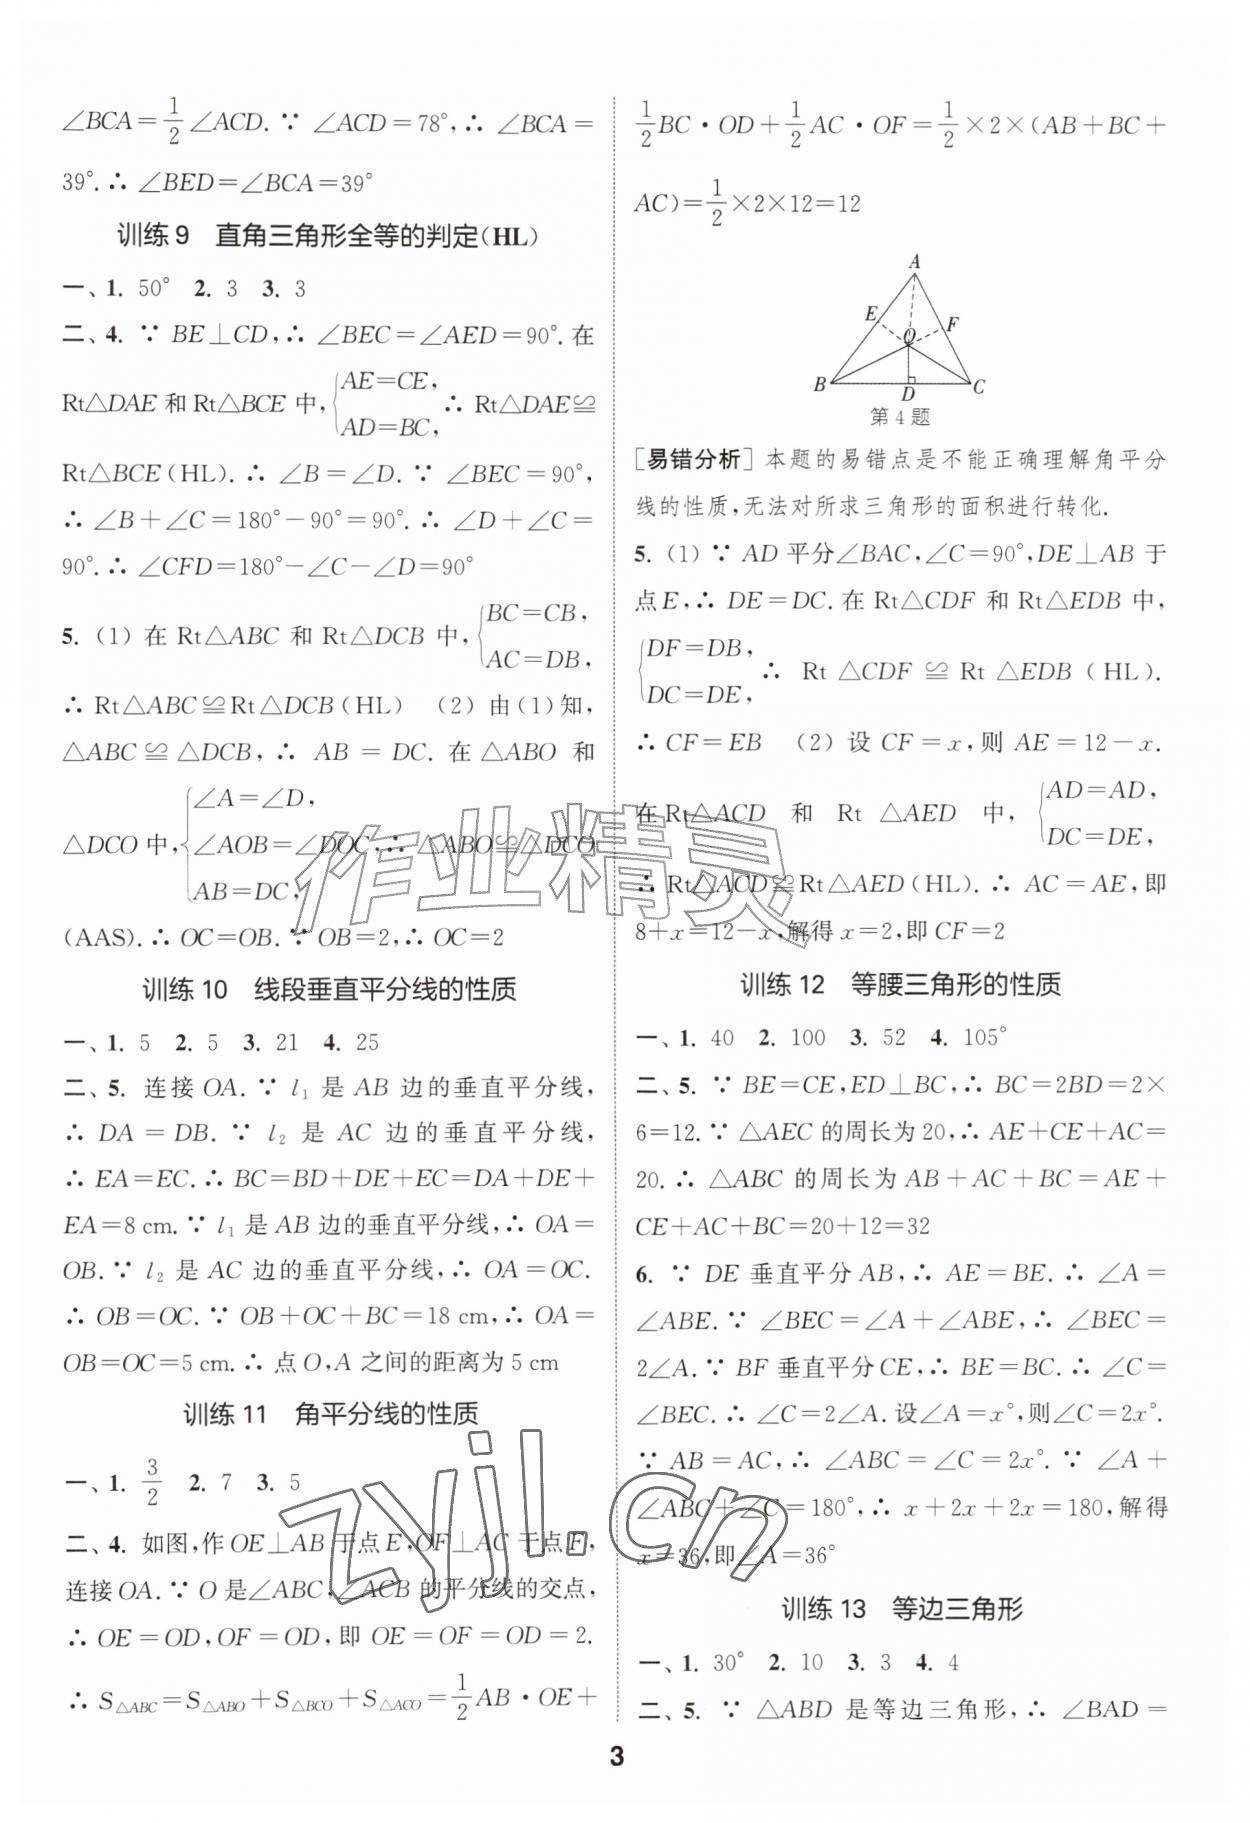 ∠BCA=1/2∠ACD.∵ ∠ACD=78°,∴ ∠BCA=
39°.∴ ∠BED=∠BCA=39°
训练9 直角三角形全等的判定(HL)
一、1. 50° 2. 3 3. 3
二、4. ∵ BE⊥CD,∴ ∠BEC=∠AED=90°.在
Rt△DAE 和 Rt△BCE 中,{AE=CE, AD=BC, ∴ Rt△DAE≌
Rt△BCE(HL).∴ ∠B=∠D.∵ ∠BEC=90°,
∴ ∠B+∠C=180°-90°=90°.∴ ∠D+∠C=
90°.∴ ∠CFD=180°-∠C-∠D=90°
5. (1) 在 Rt△ABC 和 Rt△DCB 中,{BC=CB, AC=DB,
∴ Rt△ABC≌Rt△DCB(HL) (2) 由(1)知,
△ABC≌△DCB,∴ AB=DC.在△ABO 和
△DCO 中,{∠A=∠D, ∠AOB=∠DOC, AB=DC, ∴ △ABO≌△DCO
(AAS).∴ OC=OB.∵ OB=2,∴ OC=2
训练10 线段垂直平分线的性质
一、1. 5 2. 5 3. 21 4. 25
二、5. 连接 OA.∵ l₁ 是 AB 边的垂直平分线,
∴ DA=DB.∵ l₂ 是 AC 边的垂直平分线,
∴ EA=EC.∴ BC=BD+DE+EC=DA+DE+
EA=8 cm.∵ l₁ 是 AB 边的垂直平分线,∴ OA=
OB.∵ l₂ 是 AC 边的垂直平分线,∴ OA=OC.
∴ OB=OC.∵ OB+OC+BC=18 cm,∴ OA=
OB=OC=5 cm.∴ 点 O,A 之间的距离为 5 cm
训练11 角平分线的性质
一、1. 3/2 2. 7 3. 5
二、4. 如图,作 OE⊥AB 于点 E,OF⊥AC 于点 F,
连接 OA.∵ O 是∠ABC,∠ACB 的平分线的交点,
∴ OE=OD,OF=OD,即 OE=OF=OD=2.
∴ S△ABC=S△ABO+S△BCO+S△ACO=1/2AB·OE+
1/2BC·OD+1/2AC·OF=1/2×2×(AB+BC+
AC)=1/2×2×12=12
A
E
F
O
B
D
C
第4题
[易错分析] 本题的易错点是不能正确理解角平分
线的性质,无法对所求三角形的面积进行转化.
5. (1) ∵ AD 平分∠BAC,∠C=90°,DE⊥AB 于
点E,∴ DE=DC.在 Rt△CDF 和 Rt△EDB 中,
{DF=DB, DC=DE, ∴ Rt△CDF≌Rt△EDB(HL).
∴ CF=EB (2) 设 CF=x,则 AE=12-x.
在Rt△ACD 和 Rt△AED 中,{AD=AD, DC=DE,
∴ Rt△ACD≌Rt△AED(HL).∴ AC=AE,即
8+x=12-x,解得 x=2,即 CF=2
训练12 等腰三角形的性质
一、1. 40 2. 100 3. 52 4. 105°
二、5. ∵ BE=CE,ED⊥BC,∴ BC=2BD=2×
6=12.∵ △AEC 的周长为 20,∴ AE+CE+AC=
20.∴ △ABC 的周长为 AB+AC+BC=AE+
CE+AC+BC=20+12=32
6. ∵ DE 垂直平分 AB,∴ AE=BE.∴ ∠A=
∠ABE.∵ ∠BEC=∠A+∠ABE,∴ ∠BEC=
2∠A.∵ BF 垂直平分 CE,∴ BE=BC.∴ ∠C=
∠BEC.∴ ∠C=2∠A.设∠A=x°,则∠C=2x°.
∵ AB=AC,∴ ∠ABC=∠C=2x°.∵ ∠A+
∠ABC+∠C=180°,∴ x+2x+2x=180,解得
x=36,即∠A=36°
训练13 等边三角形
一、1. 30° 2. 10 3. 3 4. 4
二、5. ∵ △ABD 是等边三角形,∴ ∠BAD=
3
作业精灵
zyjl.cn